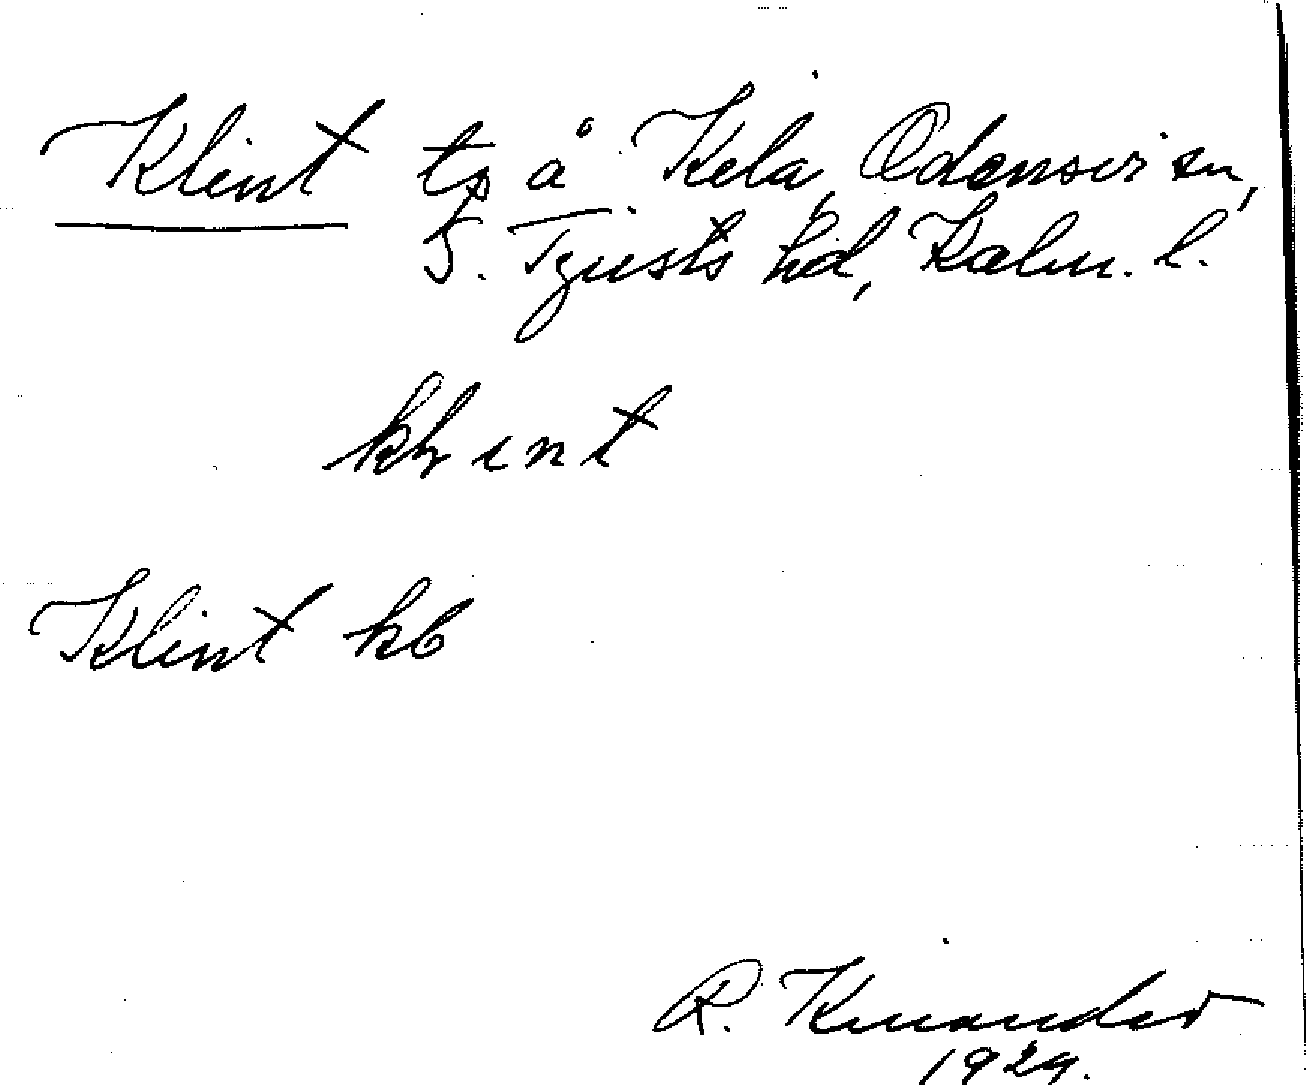 Klint tp å Kela, Odensvi sn,
S. Tjusts hd, Kalm. l.
klint
Klint kb
R. Kinander
1929.